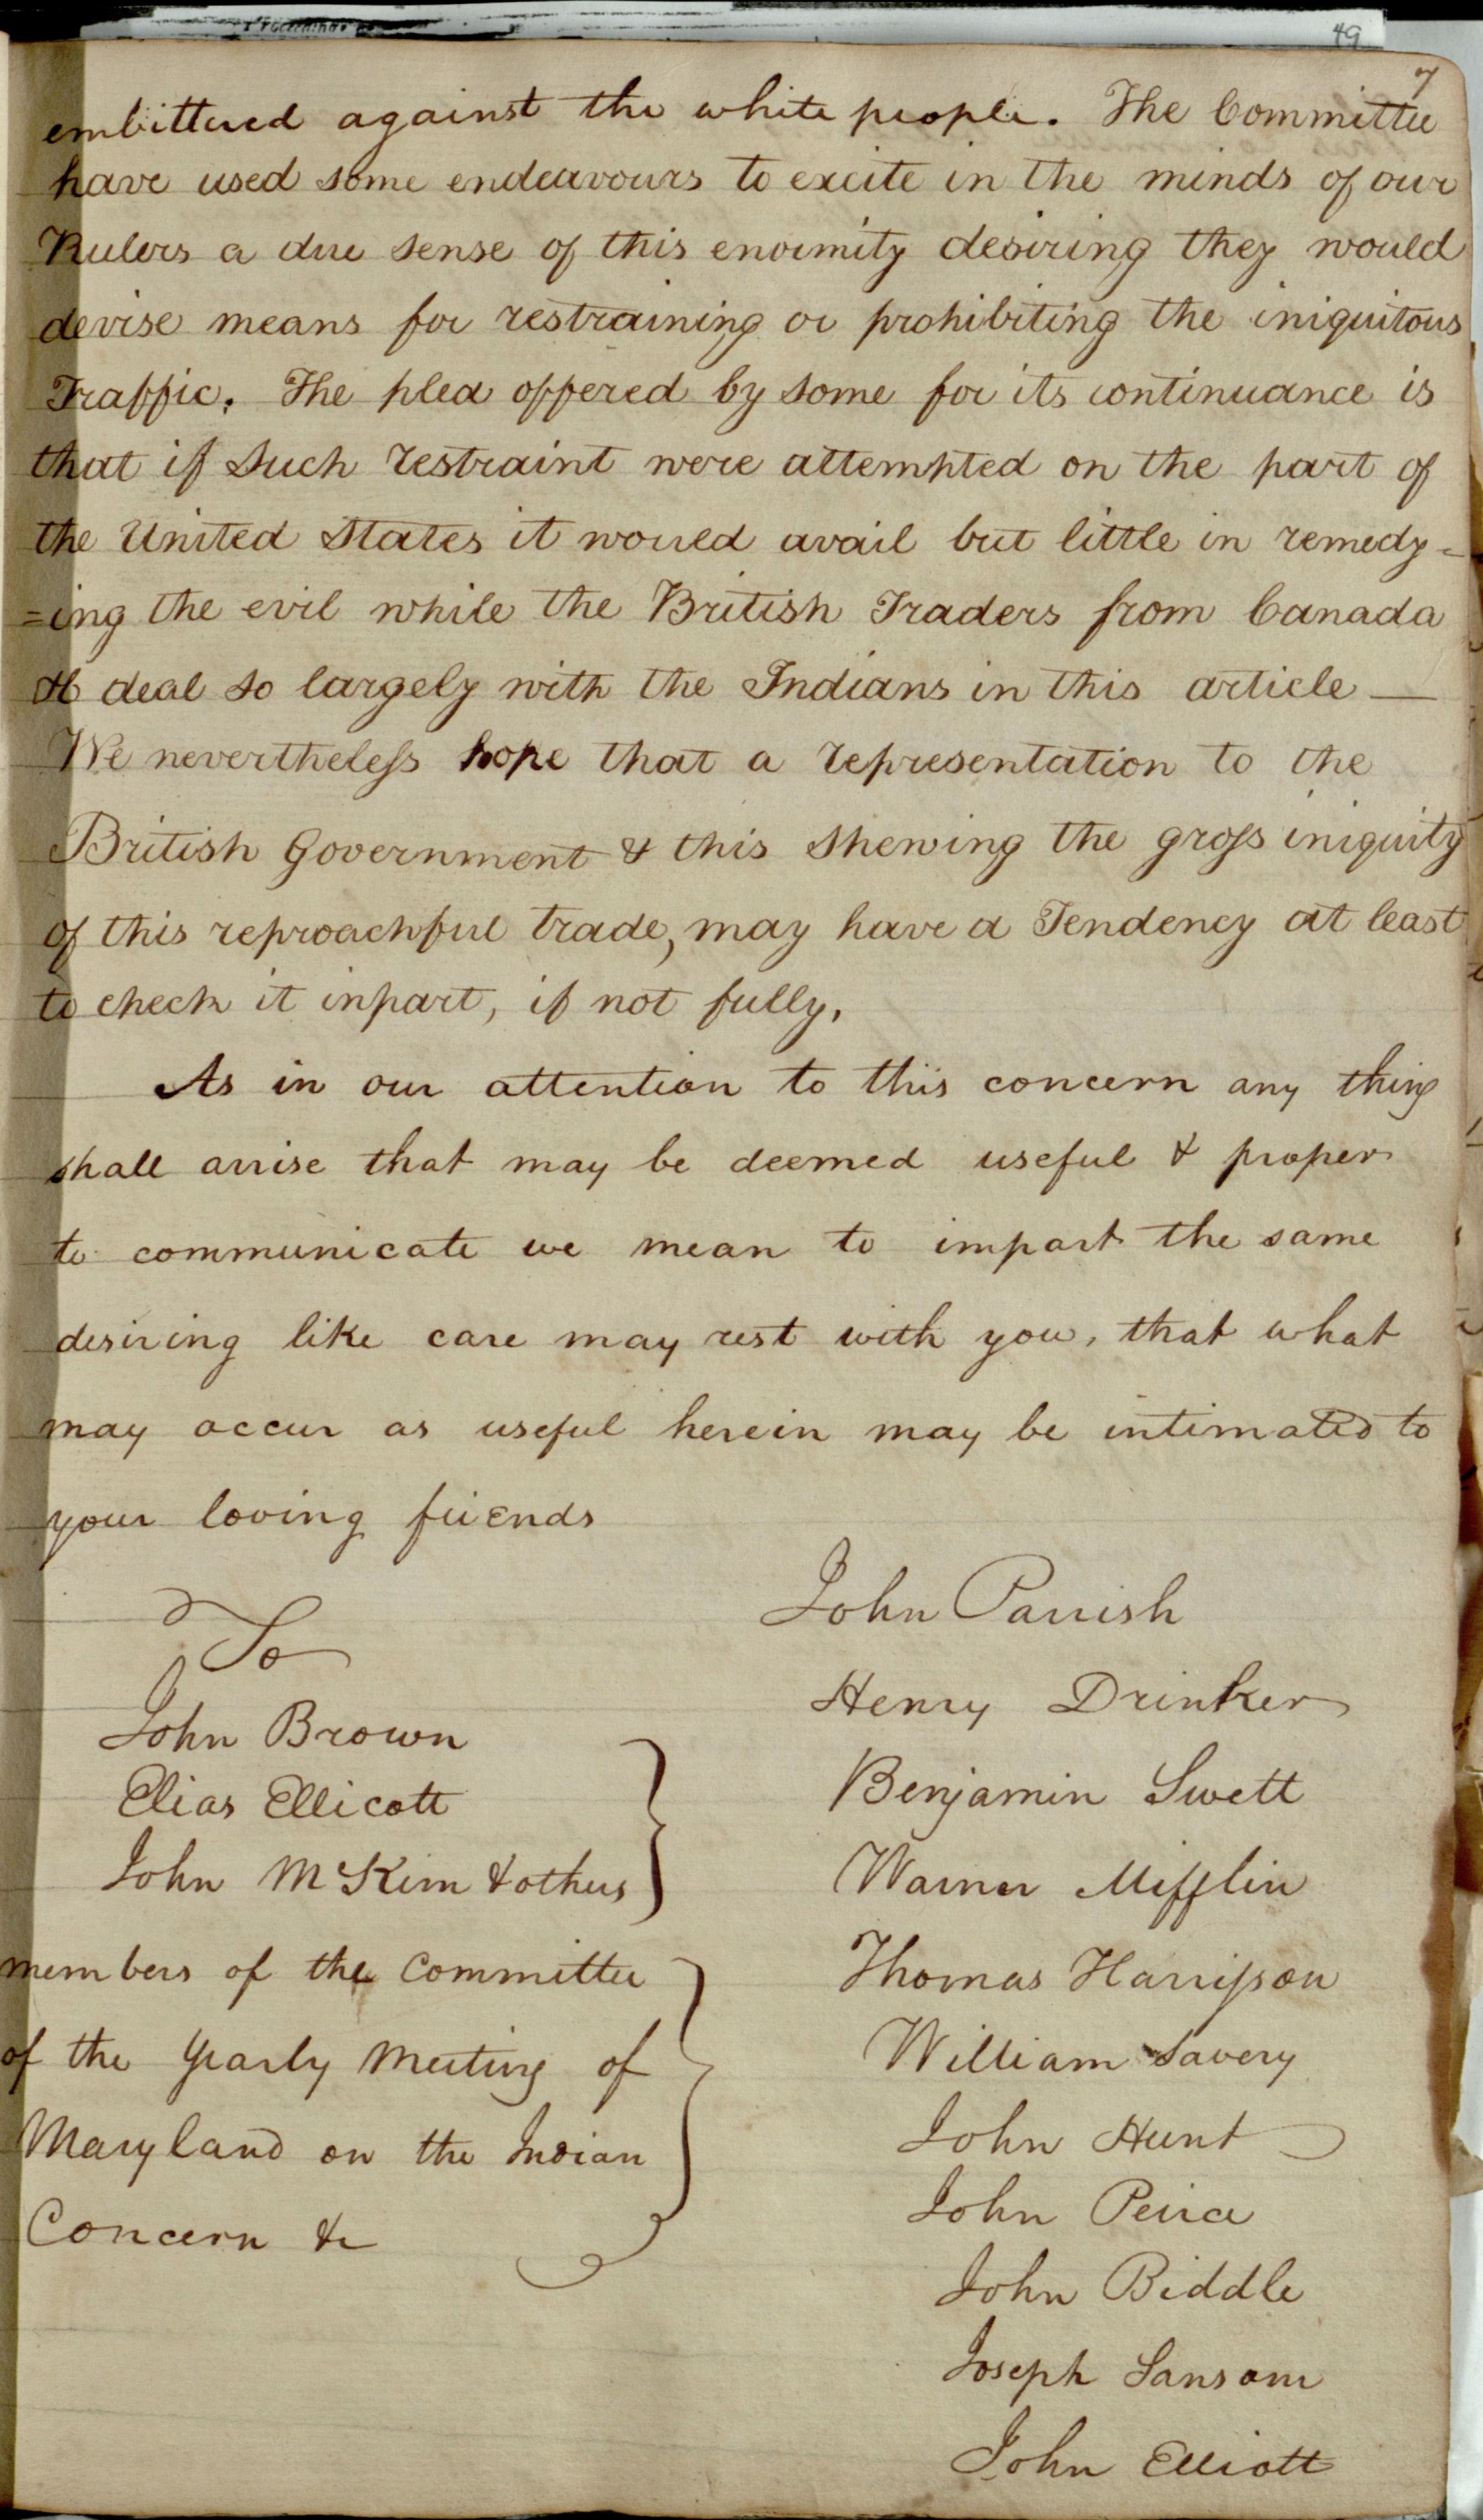 49
7
embittered against the white people. The Committee
have used some endeavours to excite in the minds of our
Rulers a due sense of this enormity desiring they would
devise means for restraining or prohibiting the iniquitous
Traffic. The plea offered by some for its continuance is
that if such restraint were attempted on the part of
the United States it would avail but little in remedy=
=ing the evil while the British Traders from Canada
deal so largely with the Indians in this article —
We nevertheless hope that a representation to the
British Government & this shewing the gross iniquity
of this reproachful trade, may have a Tendency at least
to check it inpart, if not fully,
As in our attention to this concern any thing
shall arrise that may be deemed useful & proper
to communicate we mean to impart the same
desiring like care may rest with you, that what
may occur as useful herein may be intimated to
your loving friends
To
John Brown
Elias Ellicott
John McKim & others
members of the Committee
of the Yearly Meeting of
Maryland on the Indian
Concern &c
John Parrish
Henry Drinker
Benjamin Swett
Warner Mifflin
Thomas Harrison
William Savery
John Hunt
John Peirce
John Biddle
Joseph Sansom
John Elliott